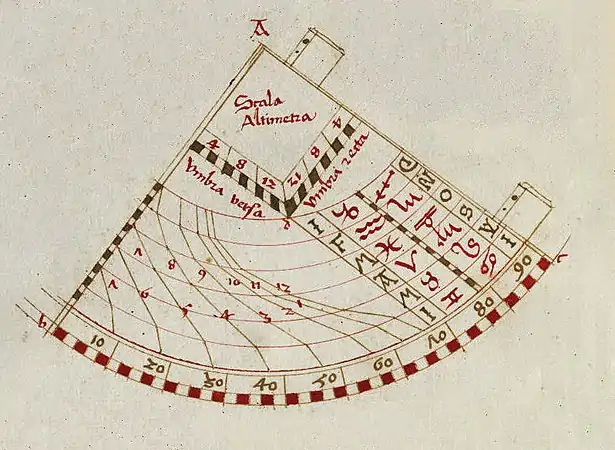 A
Scala
Altimetra
4 8 12
12 8 4
Vmbra versa
Vmbra recta
d
D N O S K I
I F M A M I
♑ ♐
♒ ♏
♓ ♎
♈ ♍
♉ ♌
♊ ♋
8 9 10 11 12
6 5 4 3 2 1
b
10 20 30 40 50 60 70 80 90
c